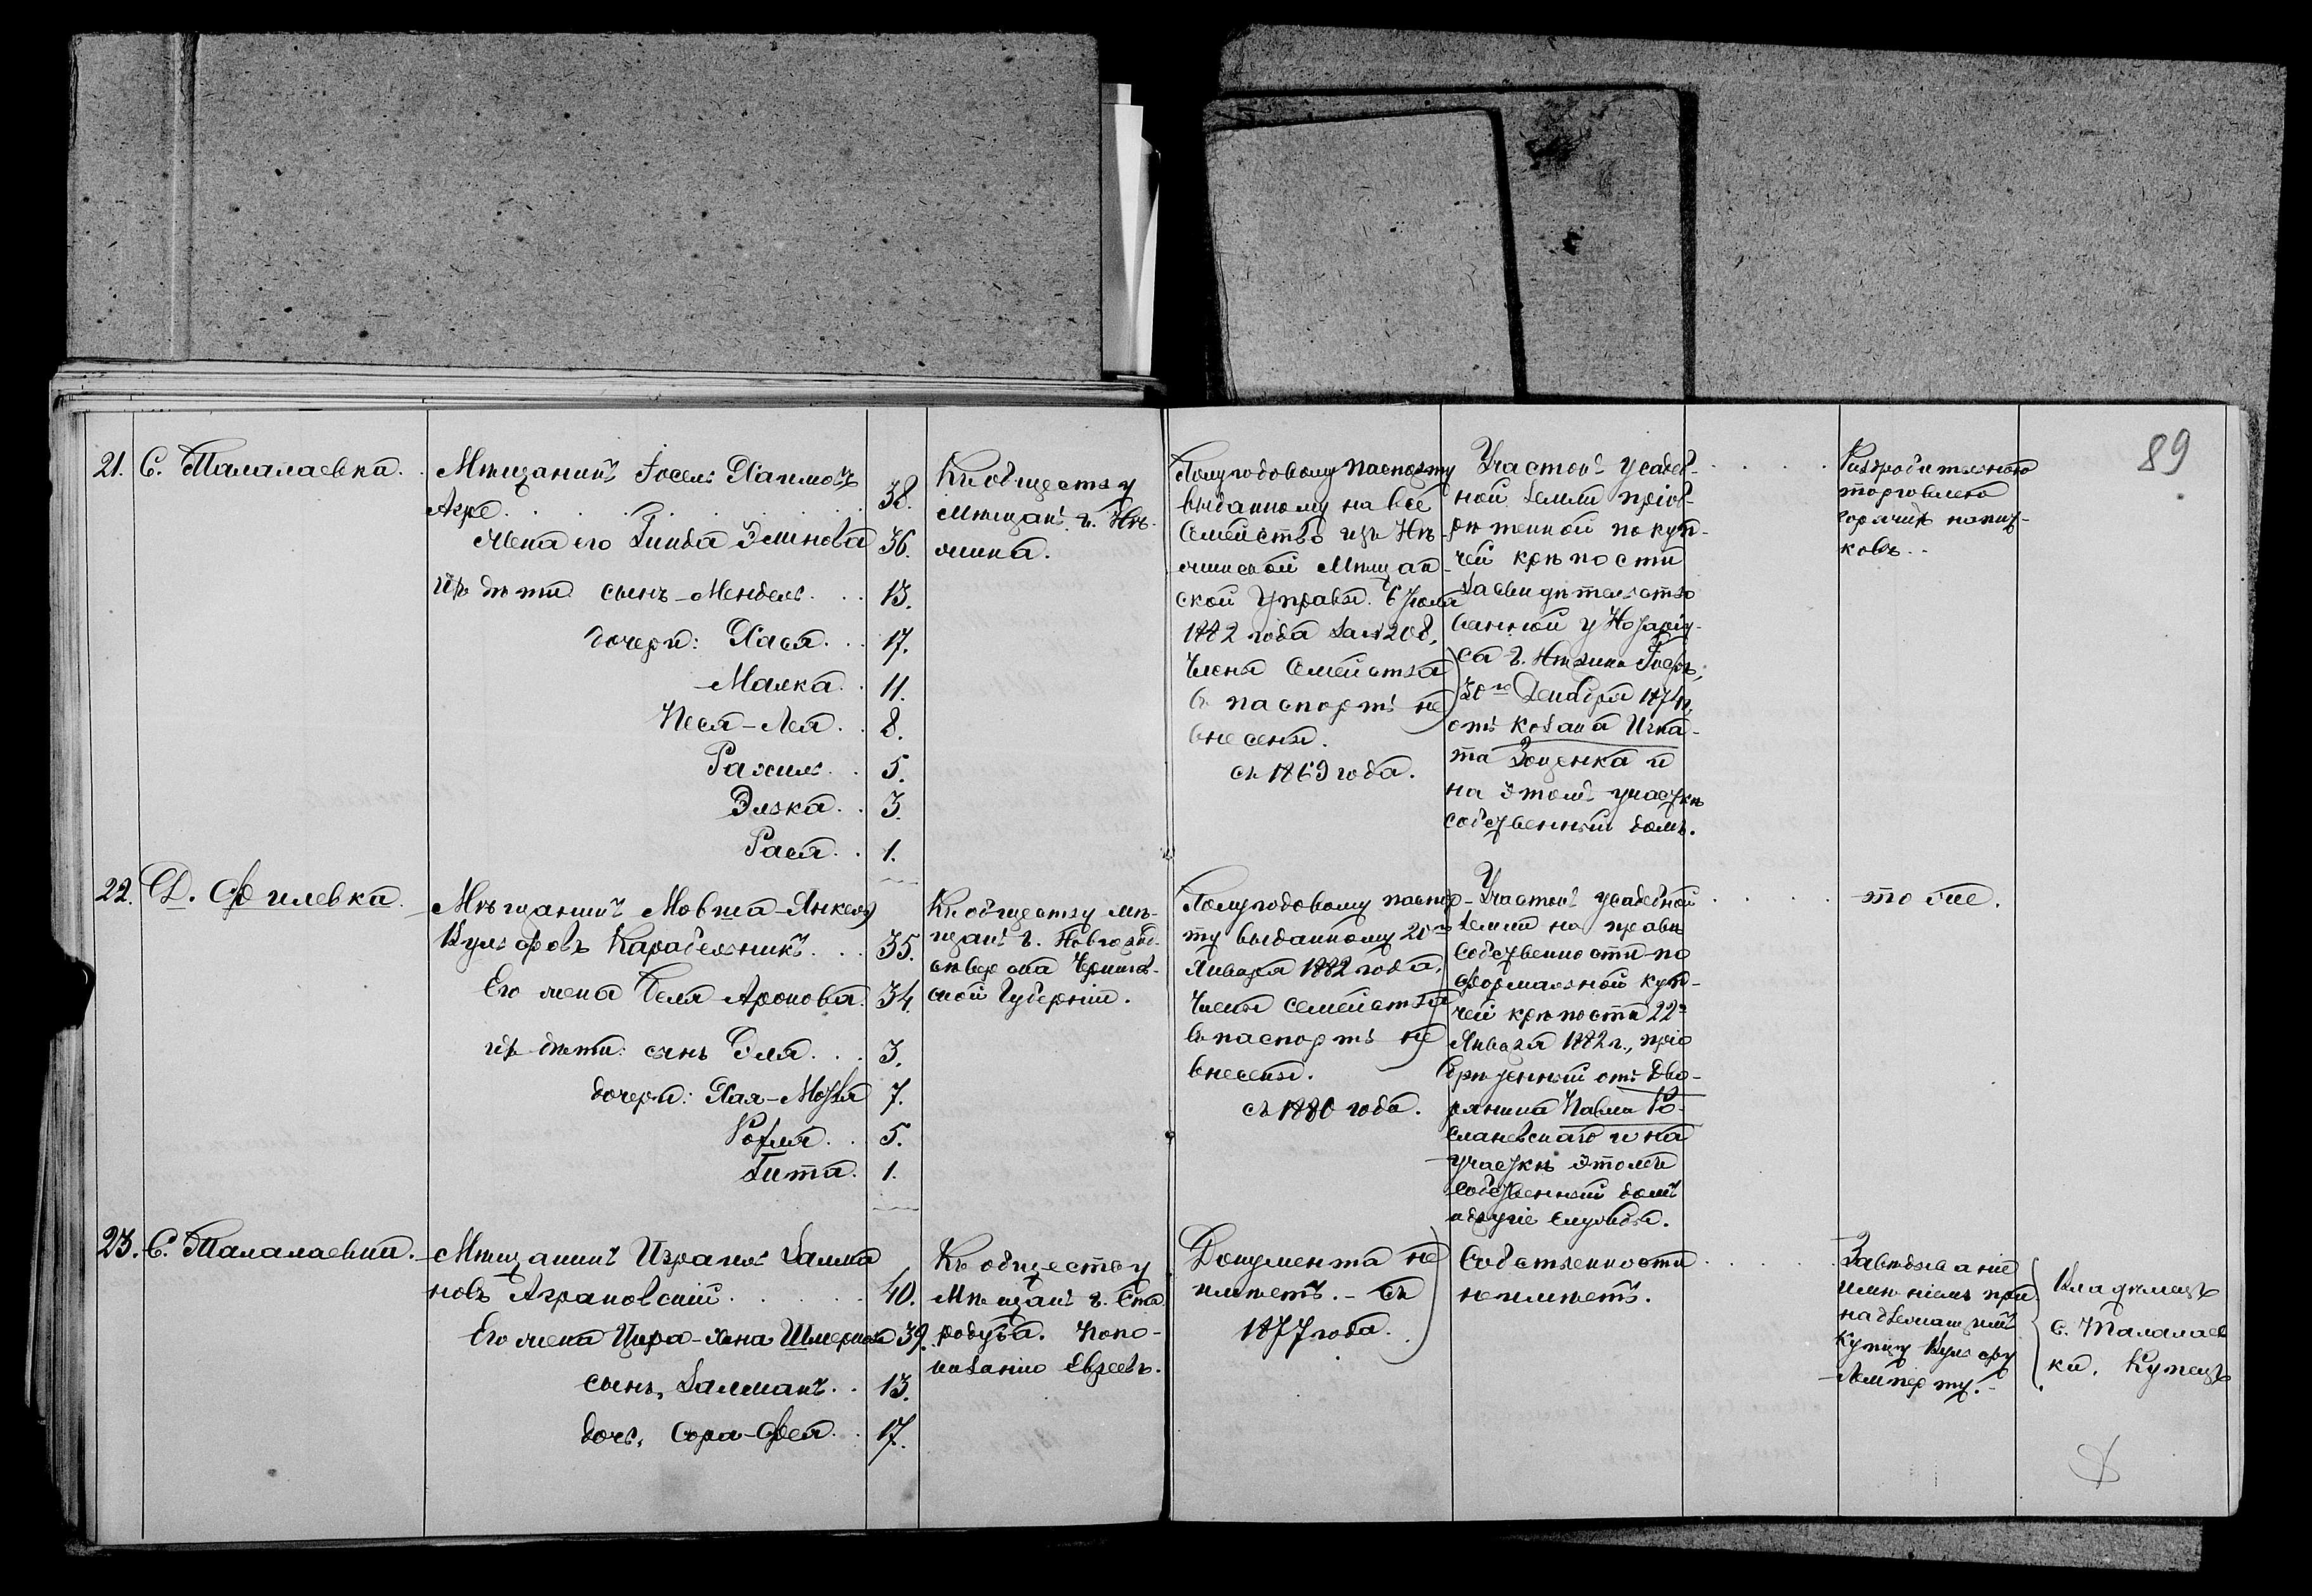 89
21. С. Талалаевка.
Мѣщанинъ Іосель Хаимовъ
Агре 38.
Жена его Зинда 36.
ихъ дѣти сынъ Мендель 13.
дочери: Хася 17.
Малка 11.
Песя-Лея 8.
Рахиль 5.
Элька 3.
Рася 1.
Къ обществу
мѣщанъ г. Нѣ-
жина.
Полугодовому паспорту
выданному на все
семейство изъ Нѣ-
жинской Мѣщан-
ской Управы 6 Іюля
1882 года за № 208,
Члены семейства
въ паспортъ не
внесены.
съ 1869 года.
Участокъ усадеб-
ной земли пріоб-
рѣтенной по куп-
чей крѣпости
засвидѣтельство
ванной у Нотаріу-
са г. Нѣжина
30го Декабря 1874 г.
отъ козака Игна-
та Зоценка и
на этомъ участкѣ
собственный домъ.
Раздробительною
торговлею
горячихъ напит-
ковъ.
22. Д. Филевка.
Мѣщанинъ Мовша-Янкель
Кульфовъ Карабельникъ 35.
Его жена Беля Аронова 34.
ихъ дѣти: сынъ Эля 3.
дочери: Хая-Мозля 7.
5.
Гита 1.
Къ обществу мѣ-
щанъ г. Новгород-
сѣверска Чернигов-
ской Губерніи.
Полугодовому паспор-
ту выданному 20го
Января 1882 года.
Члены семейства
въ паспортъ не
внесены.
съ 1880 года.
Участокъ усадебной
земли на правѣ
собственности по
формальной куп-
чей крѣпости 22го
Января 1882 г., пріо
брѣтенный отъ Дво-
рянина Павла Ро-
славевскаго и на
участкѣ этомъ
собственный домъ
и другіе службы.
тоже.
23. С. Талалаевки.
Мѣщанинъ Израиль Залма
новъ Аграновскій 40.
Его жена Цира-Хена Шмеркова 39.
сынъ, Залманъ 13.
дочь, Сора-Фрея 17.
Къ обществу
Мѣщанъ г. Ста-
родуба. По по-
казанію Евреевъ.
Документа не
имѣетъ. - съ
1877 года.
Собственности
не имѣетъ.
Завѣдываніе
имѣніемъ при
надлежащимъ
купцу Кульфу
Лемперту.
Владѣлецъ
с. Талалаев
ки, Купецъ